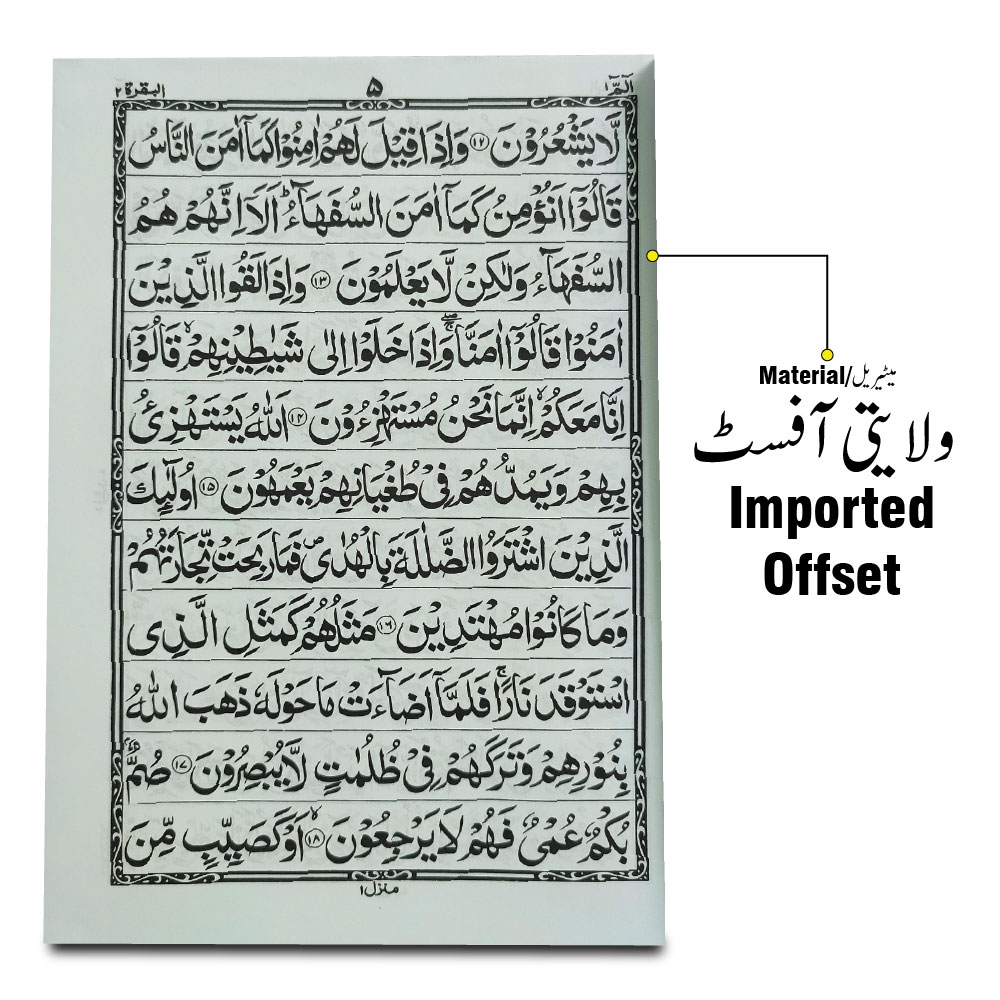 الٓمّٓ ١ ۵ البقرة ٢
لَّا يَشْعُرُوْنَ ﴿١٢﴾ وَاِذَا قِيْلَ لَهُمْ اٰمِنُوْا كَمَآ اٰمَنَ النَّاسُ
قَالُوْٓا اَنُؤْمِنُ كَمَآ اٰمَنَ السُّفَهَآءُ ؕ اَلَآ اِنَّهُمْ هُمُ
السُّفَهَآءُ وَلٰكِنْ لَّا يَعْلَمُوْنَ ﴿١٣﴾ وَاِذَا لَقُوا الَّذِيْنَ
اٰمَنُوْا قَالُوْٓا اٰمَنَّا ۖۚ وَاِذَا خَلَوْا اِلٰى شَيٰطِيْنِهِمْ ۙ قَالُوْٓا
اِنَّا مَعَكُمْ ۙ اِنَّمَا نَحْنُ مُسْتَهْزِءُوْنَ ﴿١٤﴾ اَللّٰهُ يَسْتَهْزِئُ
بِهِمْ وَيَمُدُّهُمْ فِيْ طُغْيَانِهِمْ يَعْمَهُوْنَ ﴿١٥﴾ اُولٰٓئِكَ
الَّذِيْنَ اشْتَرَوُا الضَّلٰلَةَ بِالْهُدٰى ۪ فَمَا رَبِحَتْ تِّجَارَتُهُمْ
وَمَا كَانُوْا مُهْتَدِيْنَ ﴿١٦﴾ مَثَلُهُمْ كَمَثَلِ الَّذِى
اسْتَوْقَدَ نَارًا ۚ فَلَمَّآ اَضَآءَتْ مَا حَوْلَهٗ ذَهَبَ اللّٰهُ
بِنُوْرِهِمْ وَتَرَكَهُمْ فِيْ ظُلُمٰتٍ لَّا يُبْصِرُوْنَ ﴿١٧﴾ صُمٌّۢ
بُكْمٌ عُمْيٌ فَهُمْ لَا يَرْجِعُوْنَ ﴿١٨﴾ ۙ اَوْ كَصَيِّبٍ مِّنَ
منزل ١
Material/میٹیریل
ولایتی آفسٹ
Imported
Offset